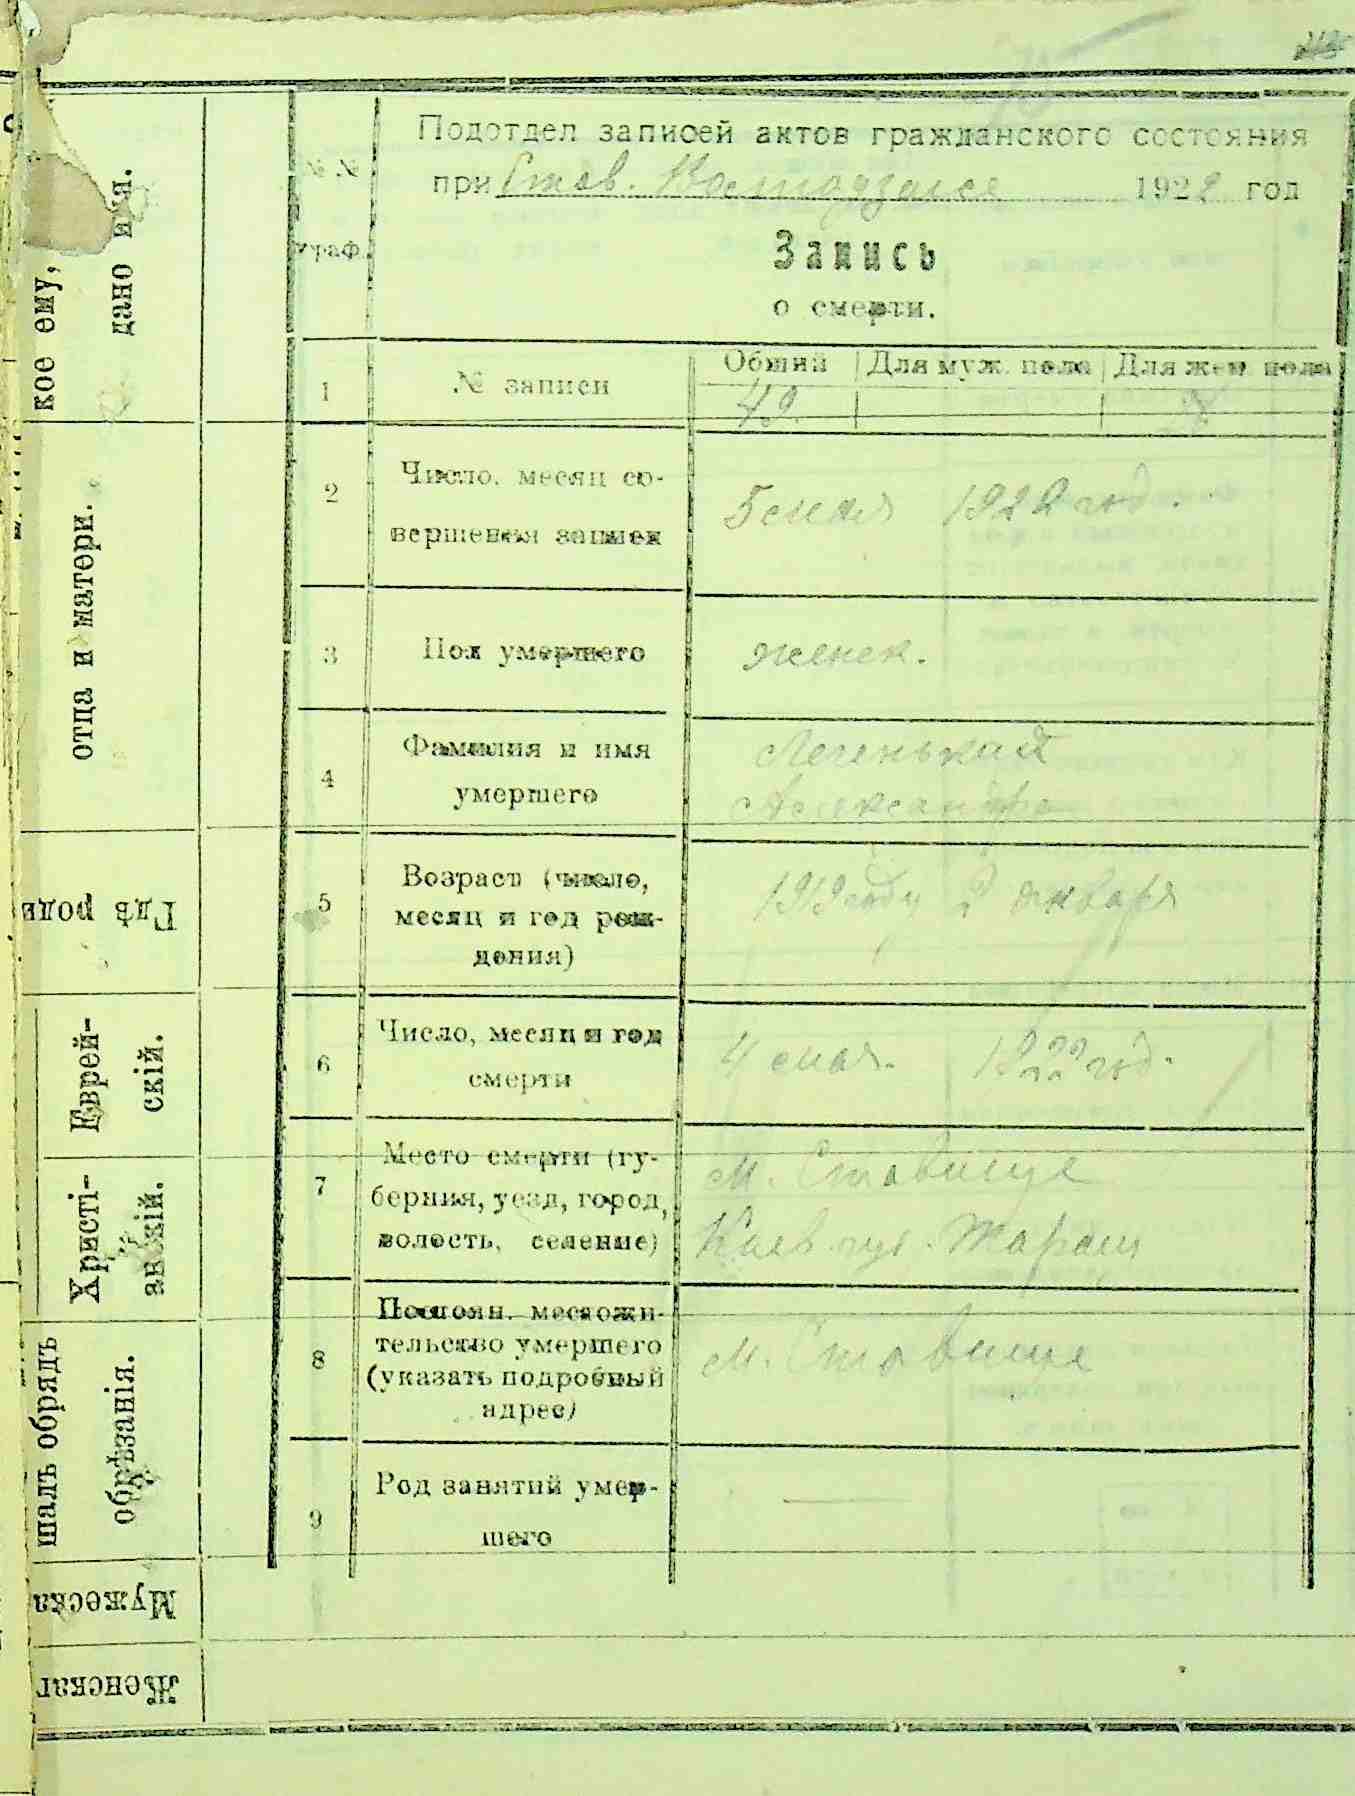 Подотдел записей актов гражданского состояния
при Став. 1922 год
№ №
граф.
Запись
о смерти.
1 № записи Общий Для муж. пола Для жен. пола
49
2 Число, месяц со-
вершения записи
5 мая 1922 год.
3 Пол умершего женск.
4 Фамилия и имя
умершего
Легенькая
Александра
5 Возраст (число,
месяц и год рож-
дения)
1919 году 2 января
6 Число, месяц и год
смерти
4 мая. 1922 год.
7 Место смерти (гу-
берния, уезд, город,
волость, селение)
м. Ставище
Киев губ. Таращ
8 Постоян. местожи-
тельство умершего
(указать подробный
адрес)
м. Ставище
9 Род занятий умер-
шего
—
кое ему,
дано имя.
отца и матери.
Гдѣ роди
Еврей-
скій.
Христі-
анскій.
шалъ обрядъ
обрѣзанія.
Мужеска
Женскаг